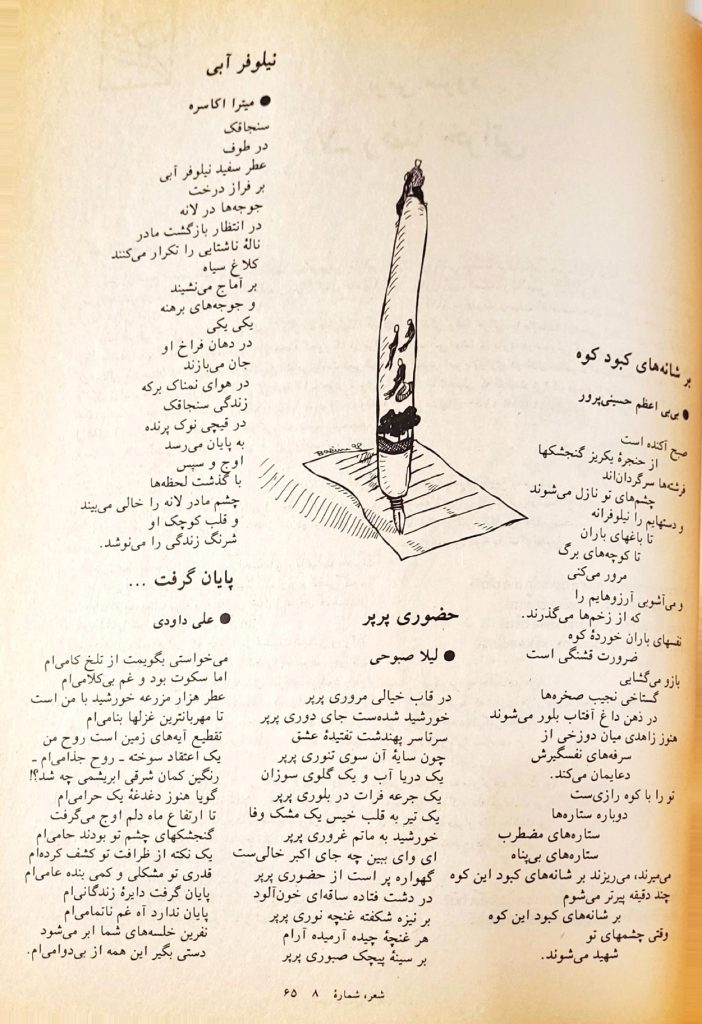 بر شانه‌های کبود کوه
● بی‌بی اعظم حسینی‌پرور
صبح آکنده است
از حنجرهٔ یکریز گنجشکها
فرشته‌ها سرگردان‌اند
چشم‌های تو نازل می‌شوند
و دستهایم را نیلوفرانه
تا باغهای باران
تا کوچه‌های برگ
مرور می‌کنی
و می‌آشوبی آرزوهایم را
که از زخم‌ها می‌گذرند.
نفسهای باران خوردهٔ کوه
ضرورت قشنگی است
بازو می‌گشایی
گستاخی نجیب صخره‌ها
در ذهن داغ آفتاب بلور می‌شوند
هنوز زاهدی میان دوزخی از
سرفه‌های نفسگیرش
دعایمان می‌کند.
تو را با کوه رازی‌ست
دوباره ستاره‌ها
ستاره‌های مضطرب
ستاره‌های بی‌پناه
می‌میرند، می‌ریزند بر شانه‌های کبود این کوه
چند دقیقه پیرتر می‌شوم
بر شانه‌های کبود این کوه
وقتی چشمهای تو
شهید می‌شوند.
نیلوفر آبی
● میترا اکاسره
سنجاقک
در طوف
عطر سفید نیلوفر آبی
بر فراز درخت
جوجه‌ها در لانه
در انتظار بازگشت مادر
نالهٔ ناشتایی را تکرار می‌کنند
کلاغ سیاه
بر آماج می‌نشیند
و جوجه‌های برهنه
یکی یکی
در دهان فراخ او
جان می‌بازند
در هوای نمناک برکه
زندگی سنجاقک
در قیچی نوک پرنده
به پایان می‌رسد
اوج و سپس
با گذشت لحظه‌ها
چشم مادر لانه را خالی می‌بیند
و قلب کوچک او
شرنگ زندگی را می‌نوشد.
حضوری پرپر
● لیلا صبوحی
در قاب خیالی مروری پرپر
خورشید شده‌ست جای دوری پرپر
سرتاسر پهندشت تفتیدهٔ عشق
چون سایهٔ آن سوی تنوری پرپر
یک دریا آب و یک گلوی سوزان
یک جرعه فرات در بلوری پرپر
یک تیر به قلب خیس یک مشک وفا
خورشید به ماتم غروری پرپر
ای وای ببین چه جای اکبر خالی‌ست
گهواره پر است از حضوری پرپر
در دشت فتاده ساقه‌ای خون‌آلود
بر نیزه شکفته غنچه نوری پرپر
هر غنچهٔ چیده آرمیده آرام
بر سینهٔ پیچک صبوری پرپر
پایان گرفت ...
● علی داودی
می‌خواستی بگویمت از تلخ کامی‌ام
اما سکوت بود و غم بی‌کلامی‌ام
عطر هزار مزرعه خورشید با من است
تا مهربانترین غزلها بنامی‌ام
تقطیع آیه‌های زمین است روح من
یک اعتقاد سوخته ـ روح جذامی‌ام ـ
رنگین کمان شرقی ابریشمی چه شد؟!
گویا هنوز دغدغهٔ یک حرامی‌ام
تا ارتفاع ماه دلم اوج می‌گرفت
گنجشکهای چشم تو بودند حامی‌ام
یک نکته از ظرافت تو کشف کرده‌ام
قدری تو مشکلی و کمی بنده عامی‌ام
پایان گرفت دایرهٔ زندگانی‌ام
پایان ندارد آه غم ناتمامی‌ام
نفرین خلسه‌های شما ابر می‌شود
دستی بگیر این همه از بی‌دوامی‌ام.
شعر، شمارهٔ ۸ ۶۵